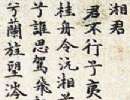 湘君
君不行兮夷
桂舟令沅湘
兮誰思駕飛
兮蘭旌望涔